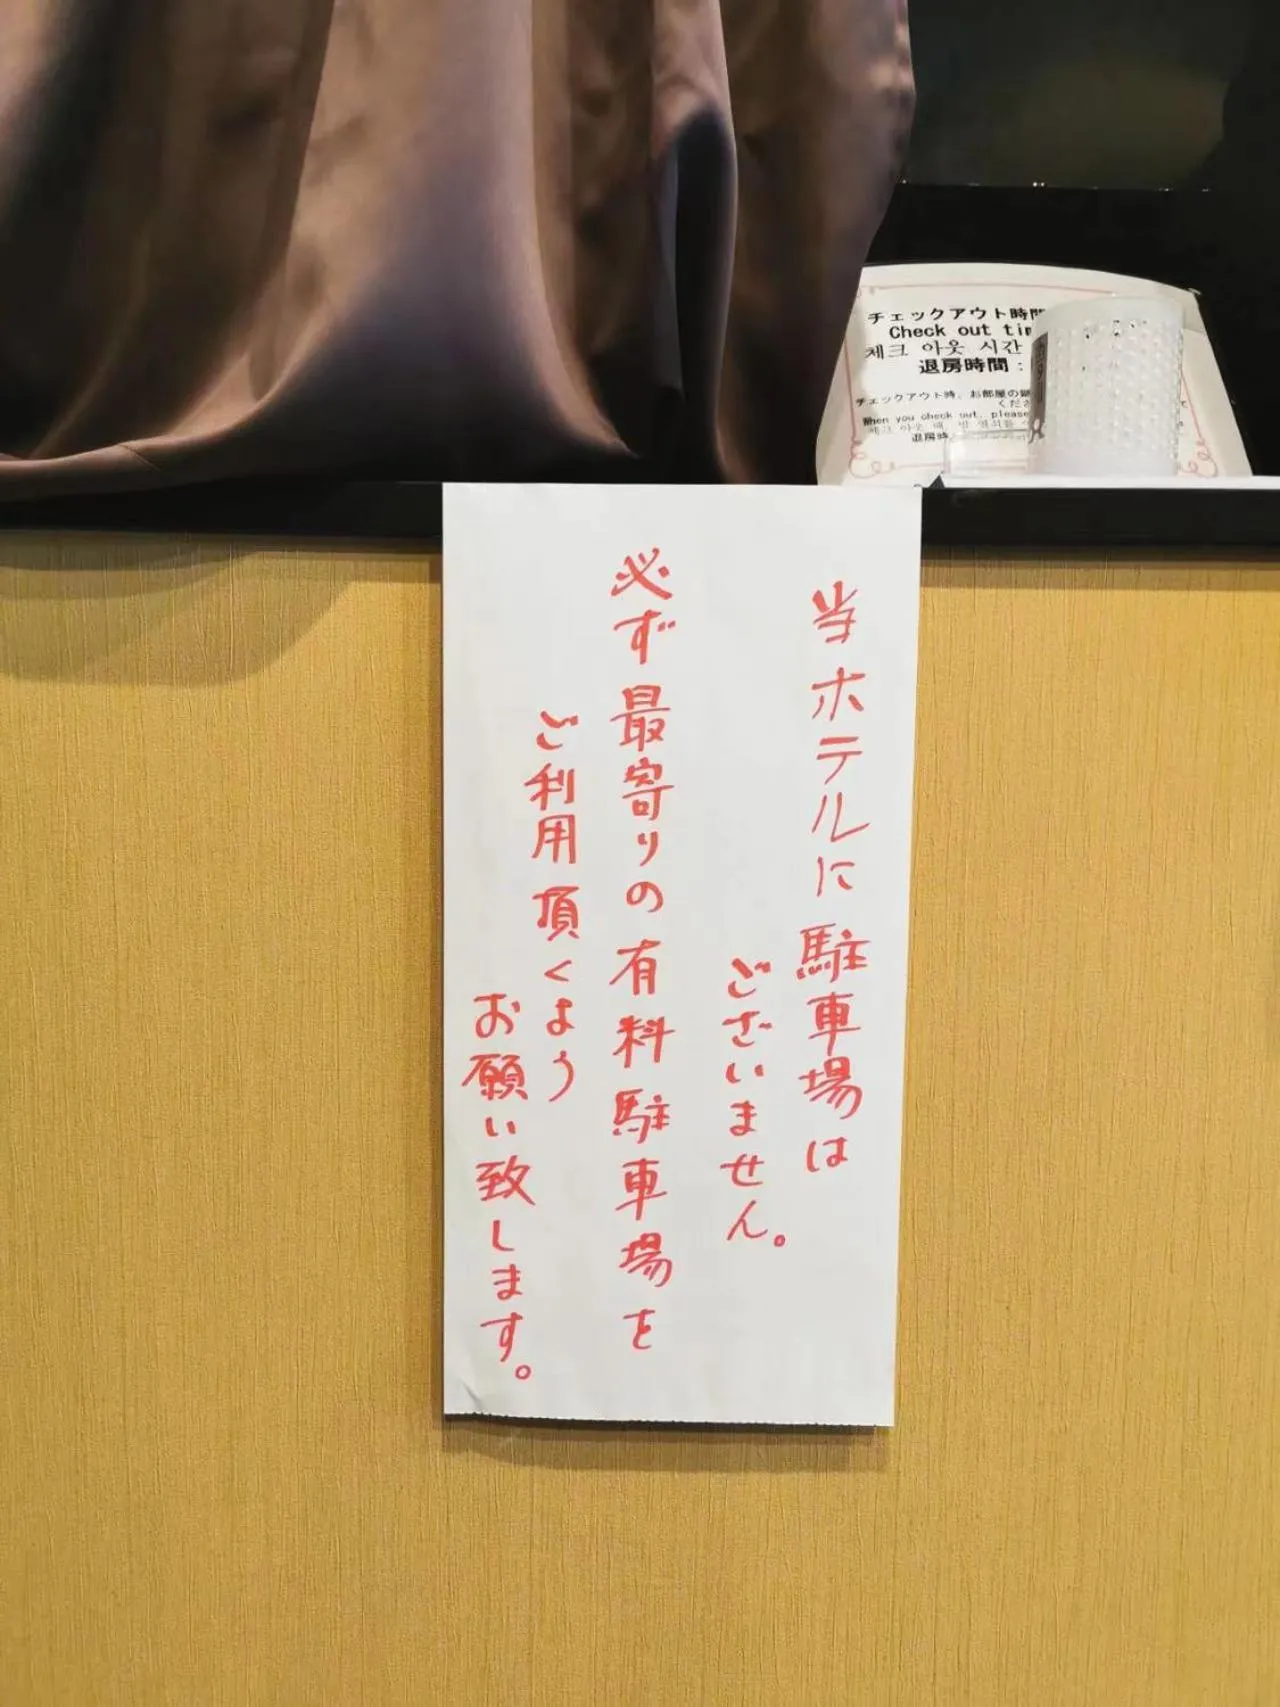 チェックアウト時間
Check out tim
체크 아웃 시간
退房時間:
チェックアウト時、お部屋の鍵
くださ
When you check out, please
체크 아웃 때
退房時
当ホテルに駐車場は
ございません。
必ず最寄りの有料駐車場を
ご利用頂くよう
お願い致します。